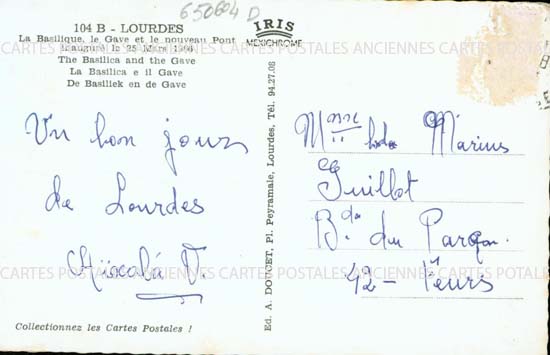 650604 D
104 B - LOURDES
La Basilique, le Gave et le nouveau Pont
inauguré le 25 Mars
The Basilica and the Gave
La Basilica e il Gave
De Basiliek en de Gave
IRIS
MEXICHROME
Un bon jour
de Lourdes
Collectionnez les Cartes Postales !
Ed. A. DOUCET, Pl. Peyramale, Lourdes, Tél. 94.27.08
Mme Marius
Guillot
Bd. du Parc
42 - Feurs
CARTES POSTALES ANCIENNES CARTES POSTALES ANCIENNES CARTES POTALES